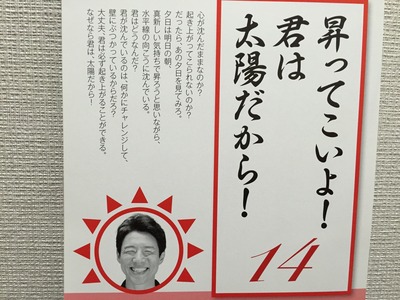 昇ってこいよ！
君は
太陽だから！
14
心が沈んだままなのか？
起き上がってこられないのか？
だったら、あの夕日を見てみろ。
夕日は明日の朝、
真新しい気持ちで昇ろうと思いながら、
水平線の向こうに沈んでいる。
君はどうなんだ？
君が沈んでいるのは、何かにチャレンジして、
壁にぶつかっているからだろ？
大丈夫、君は必ず起き上がることができる。
なぜなら君は、太陽だから！